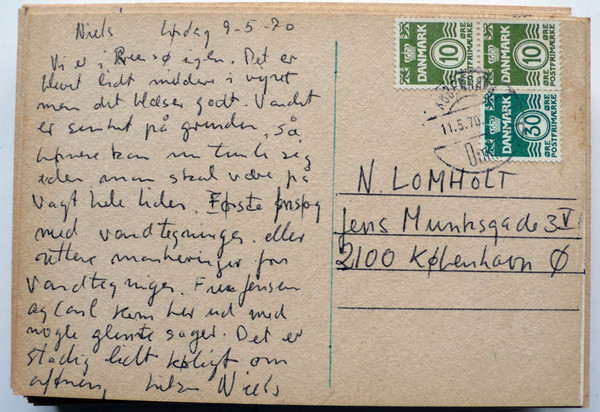 Niels Lørdag 9-5-70
Vi er i igen. Det er
blevet lidt mildere i vejret
men det blæser godt. Vandet
er sunket på grunden, så
kan nu sig
uden man skal være på
vagt hele tiden. Første forsøg
med vandtegninger. eller
rettere markeringer for
vandtegninger. Jensen
og Carl kom her ud med
nogle glemte sager. Det er
stadig lidt køligt om
aftnen, hilsen Niels
DANMARK 10 ØRE POSTFRIMÆRKE
DANMARK 10 ØRE POSTFRIMÆRKE
DANMARK 30 ØRE POSTFRIMÆRKE
11.5.70.
N. LOMHOLT
Jens Munksgade 3 V
2100 København Ø